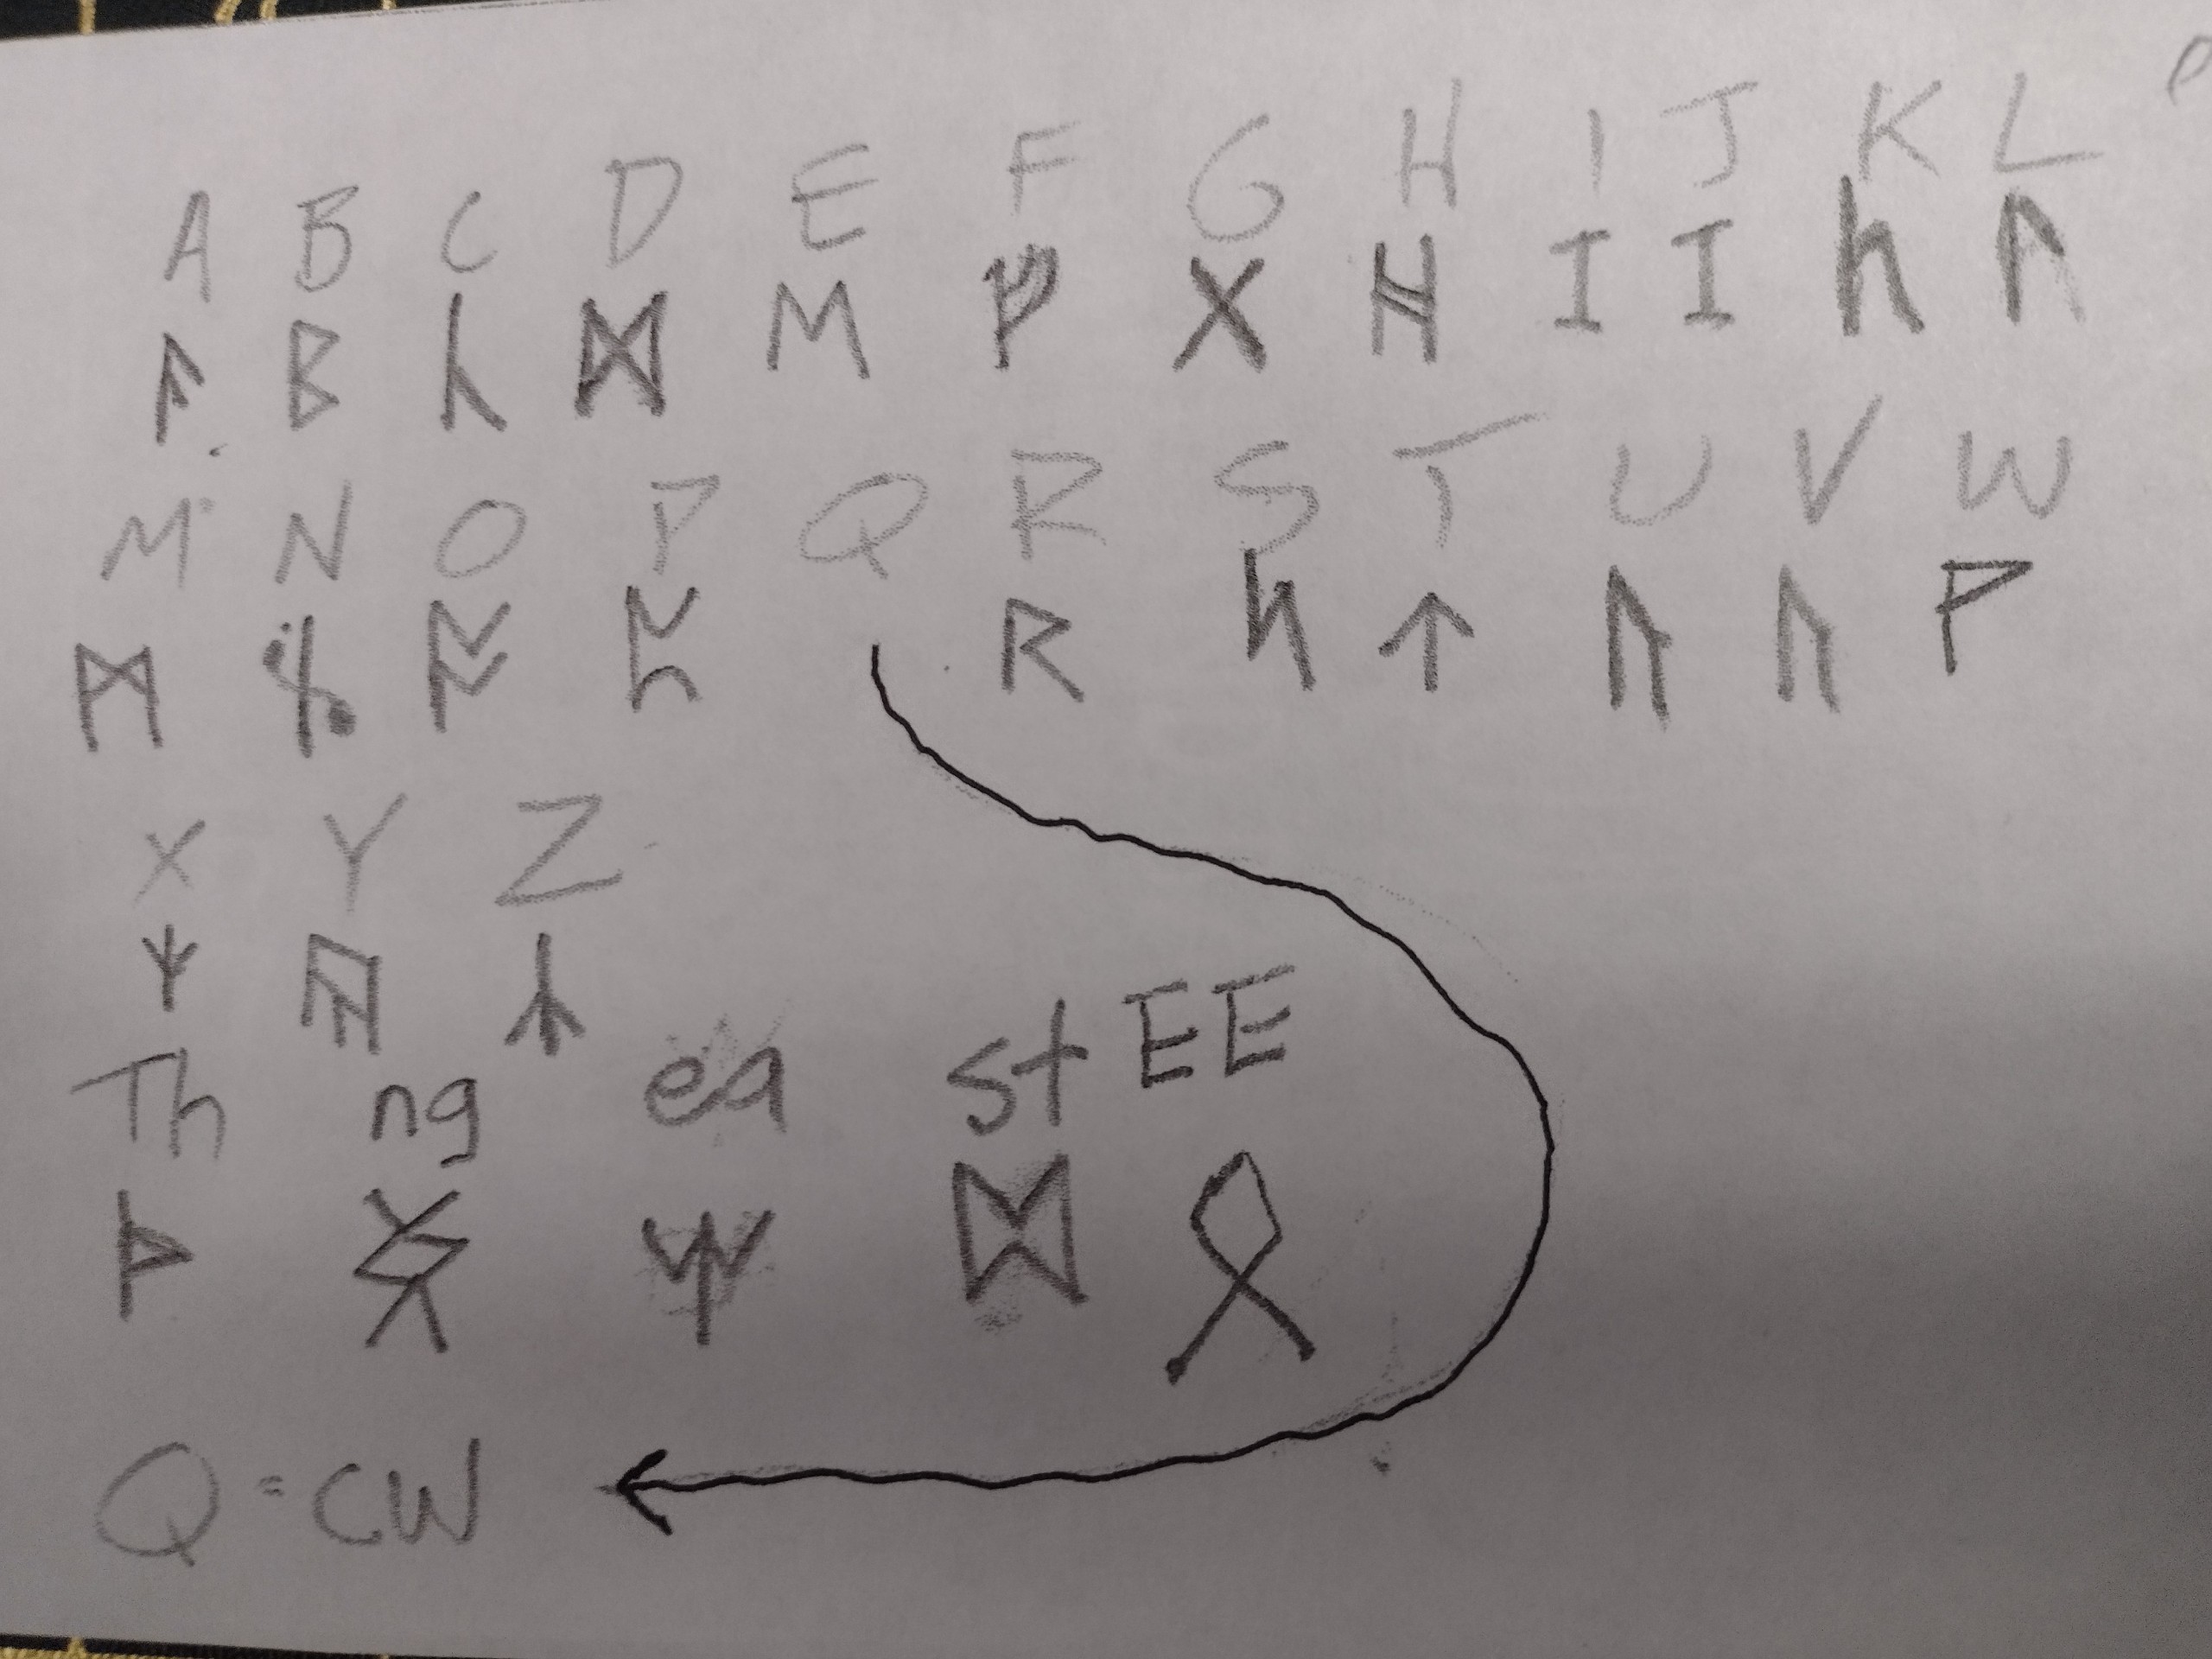 A B C D E F G H I J K L
ᚩ ᛒ ᚳ ᛞ ᛖ ᚠ ᚷ ᚻ I I ᚴ ᛚ
M N O P Q R S T U V W
ᛗ ᚾ ᚩ ᛈ ᚱ ᛋ ᛏ ᚢ ᚢ ᚹ
X Y Z
ᛉ ᚣ ᛣ
Th ng ea st EE
ᚦ ᛝ ᛠ ᛥ ᛟ
Q = CW